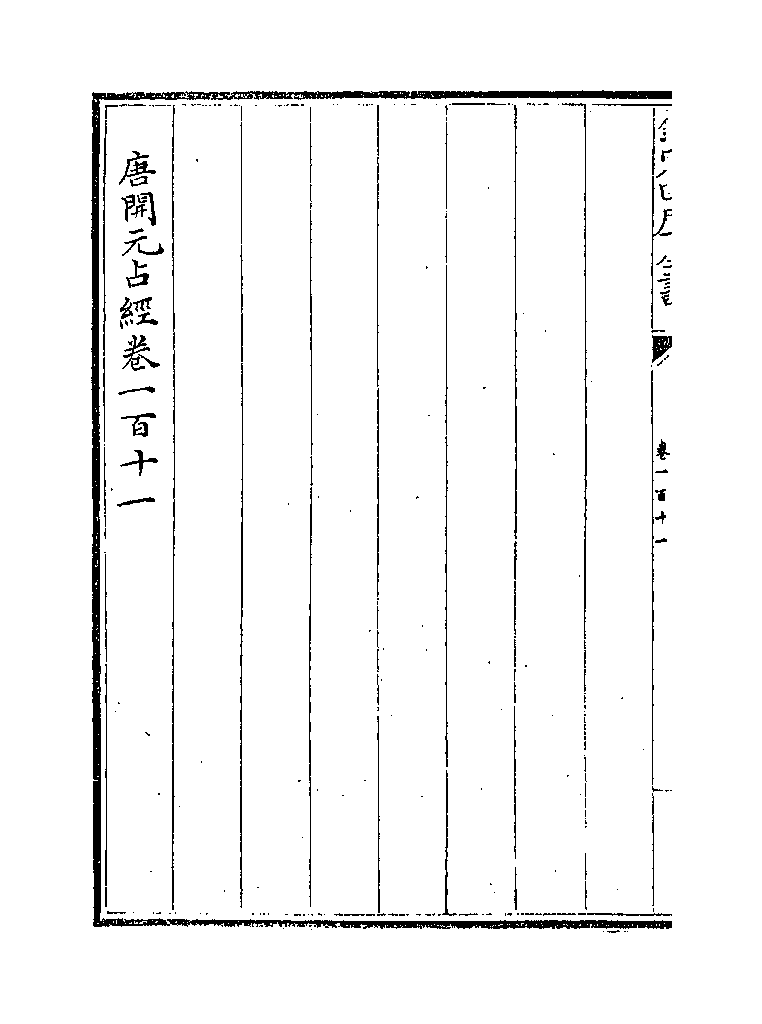 欽定四庫全書
卷一百十一
唐開元占經卷一百十一